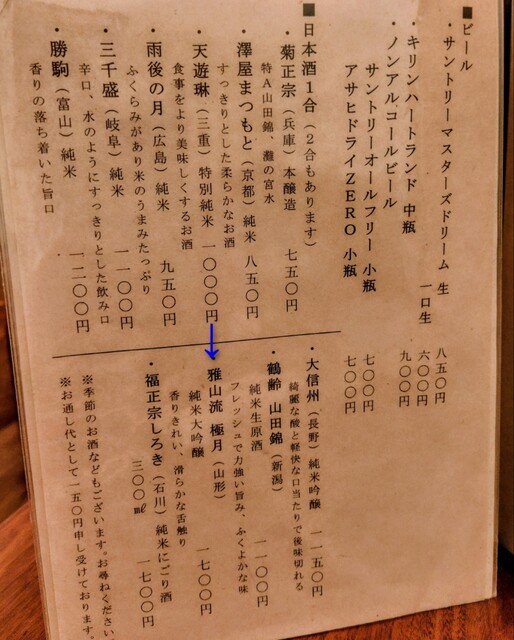 ■ビール
・サントリーマスターズドリーム 生 八五〇円
一口生 六〇〇円
・キリンハートランド 中瓶 九〇〇円
・ノンアルコールビール
サントリーオールフリー 小瓶 七〇〇円
アサヒドライZERO 小瓶 七〇〇円
■日本酒1合(2合もあります)
・菊正宗(兵庫)本醸造 七五〇円
特A山田錦、灘の宮水
・澤屋まつもと(京都)純米 八五〇円
すっきりとした柔らかなお酒
・天遊琳(三重)特別純米 一〇〇〇円
食事をより美味しくするお酒
・雨後の月(広島)純米 九五〇円
ふくらみがあり米のうまみたっぷり
・三千盛(岐阜)純米 一一〇〇円
辛口、水のようにすっきりとした飲み口
・勝駒(富山)純米 一二〇〇円
香りの落ち着いた旨口
・大信州(長野)純米吟醸 一一五〇円
綺麗な酸と軽快な口当たりで後味切れる
・鶴齢 山田錦(新潟)
純米生原酒 一一〇〇円
フレッシュで力強い旨み、ふくよかな味
・雅山流 極月(山形)
純米大吟醸 一七〇〇円
香りきれい、滑らかな舌触り
・福正宗しろき(石川)純米にごり酒
三〇〇㎖ 一七〇〇円
※季節のお酒などもございます。お尋ねください。
※お通し代として一五〇円申し受けております。